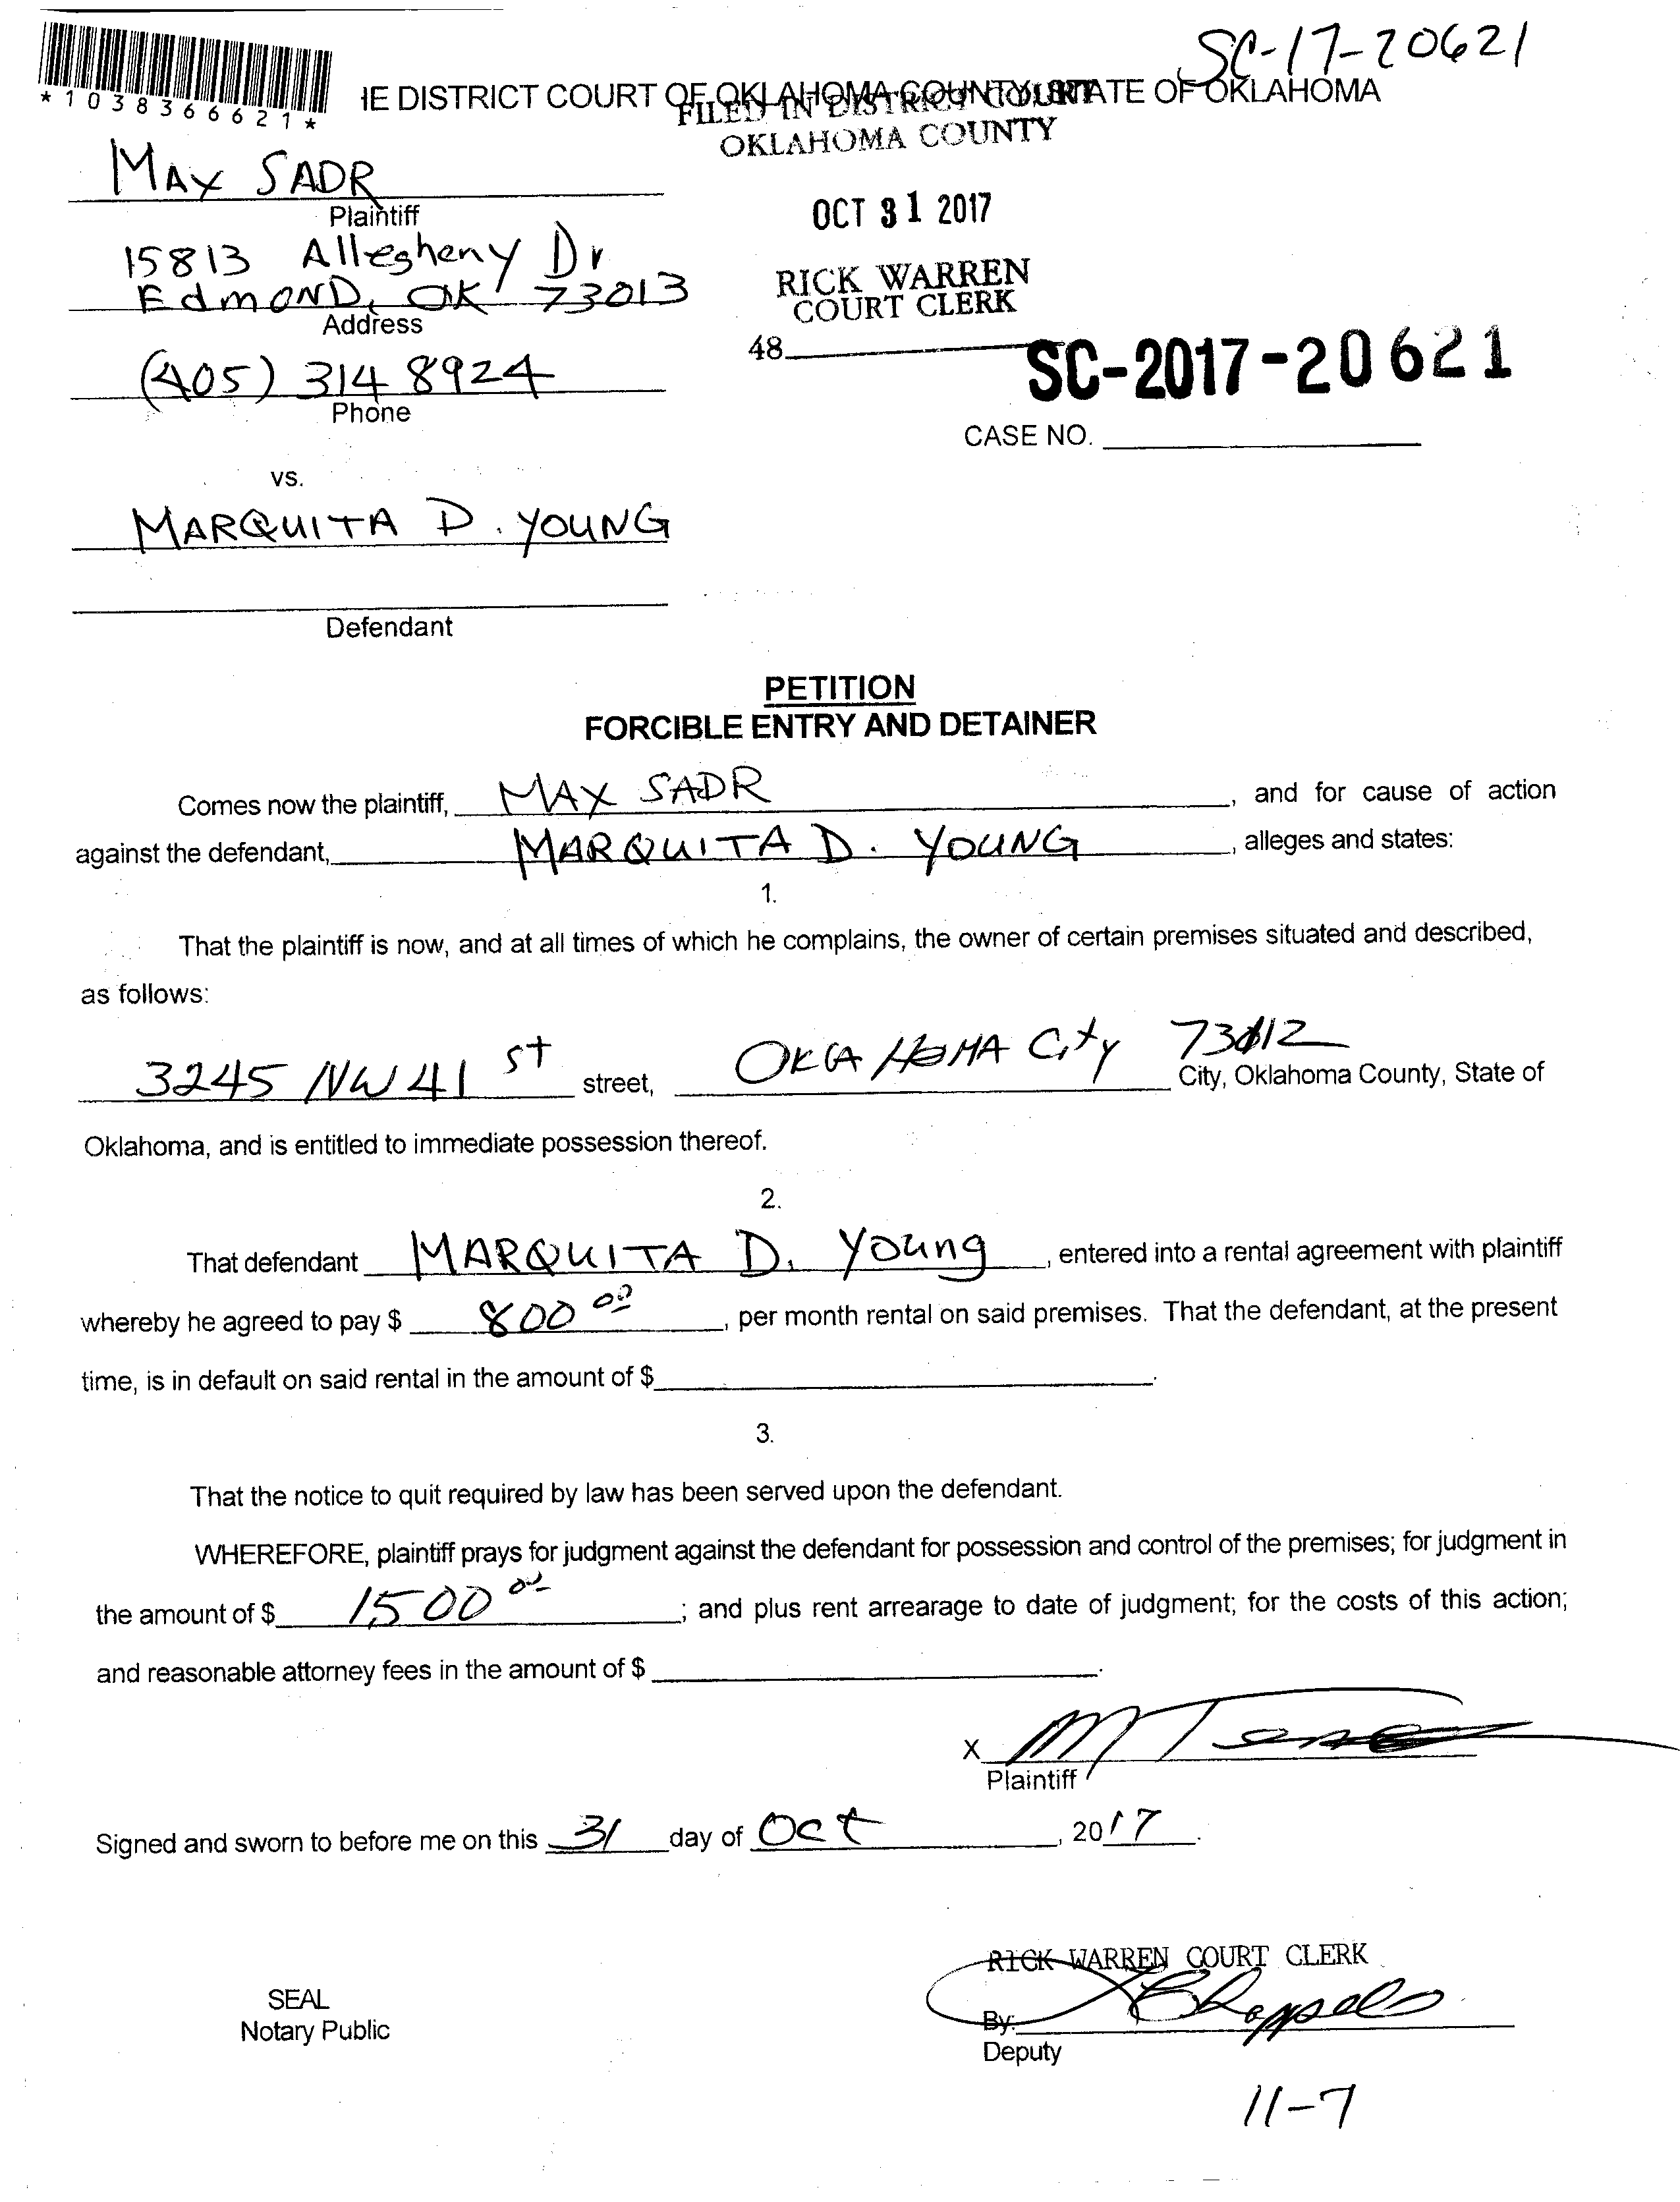 SC-17-20621
*1038366621*
IE DISTRICT COURT OF OKLAHOMA COUNTY STATE OF OKLAHOMA
FILED IN DISTRICT COURT
OKLAHOMA COUNTY
MAX SADR
Plaintiff
OCT 31 2017
15813 Allegheny Dr
EdmOND, OK 73013
Address
RICK WARREN
COURT CLERK
48
SC-2017-20621
(405) 314 8924
Phone
CASE NO.
vs.
MARQUITA D. YOUNG
Defendant
PETITION
FORCIBLE ENTRY AND DETAINER
Comes now the plaintiff, MAX SADR, and for cause of action
against the defendant, MARQUITA D. YOUNG, alleges and states:
1.
That the plaintiff is now, and at all times of which he complains, the owner of certain premises situated and described,
as follows:
3245 NW 41 st street, OKLAHOMA City 73112 City, Oklahoma County, State of
Oklahoma, and is entitled to immediate possession thereof.
2.
That defendant MARQUITA D. Young, entered into a rental agreement with plaintiff
whereby he agreed to pay $ 800 00, per month rental on said premises. That the defendant, at the present
time, is in default on said rental in the amount of $.
3.
That the notice to quit required by law has been served upon the defendant.
WHEREFORE, plaintiff prays for judgment against the defendant for possession and control of the premises; for judgment in
the amount of $ 1500 00; and plus rent arrearage to date of judgment; for the costs of this action;
and reasonable attorney fees in the amount of $.
X
Plaintiff
Signed and sworn to before me on this 31 day of Oct, 2017.
RICK WARREN COURT CLERK
SEAL
Notary Public
By:
Deputy
11-7